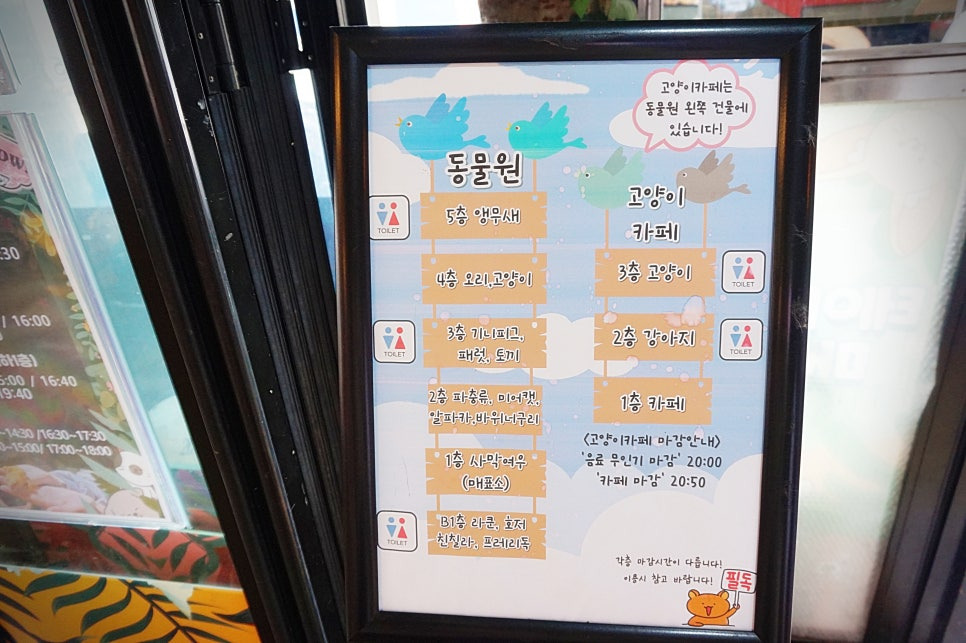 고양이카페는
동물원 왼쪽 건물에
있습니다!
동물원
5층 앵무새
TOILET
4층 오리,고양이
3층 기니피그,
패럿, 토끼
TOILET
2층 파충류, 미어캣,
알파카,바위너구리
1층 사막여우
(매표소)
B1층 라쿤, 호저
친칠라, 프레리독
TOILET
고양이
카페
3층 고양이
TOILET
2층 강아지
TOILET
1층 카페
<고양이카페 마감안내>
'음료 무인기 마감' 20:00
'카페 마감' 20:50
각층 마감시간이 다릅니다!
이용시 참고 바랍니다!
필독
/ 16:00
/ 16:40
19:40
/16:30~17:30
/ 17:00~18:00